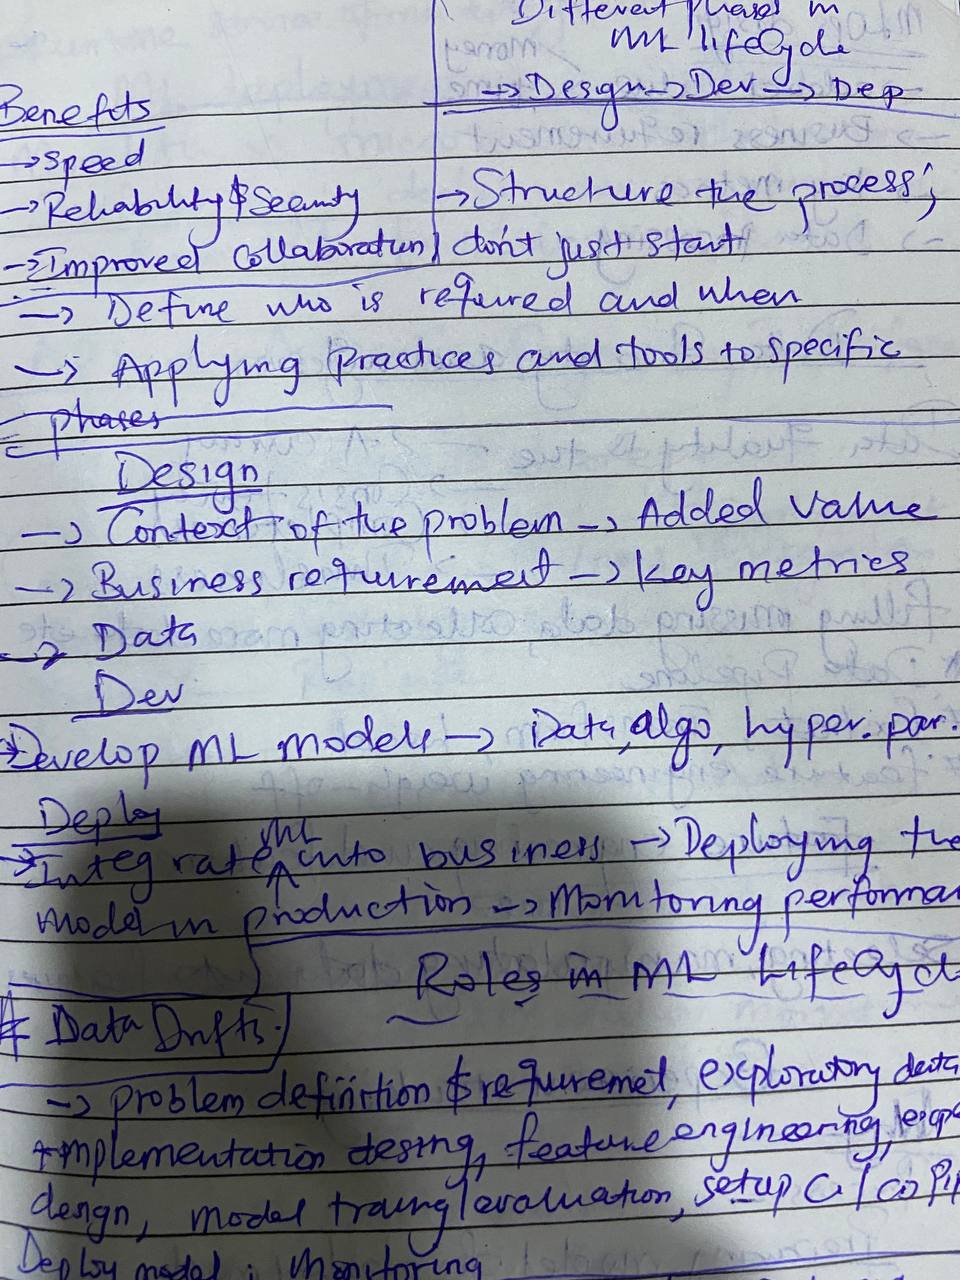 Different Phases in
ML lifeCycle
→ Design → Dev → Dep
Benefits
→ Speed
→ Reliability & Security
→ Improved Collaboration
→ Structure the process;
don't just start
→ Define who is required and when
→ Applying Practices and tools to specific
phases
Design
→ Context of the problem → Added Value
→ Business requirement → Key metrics
→ Data
Dev
→ Develop ML models → Data, algo, hyper. par.
Deploy
→ Integrate ML into business → Deploying the
model in production → Monitoring performan
Roles in ML LifeCycl
# Data Drifts.
→ problem definition & requiremet, exploratory data
implementation desing, feature engineering,
design, model traing/evaluation, setup CI/CD Pip
Deploy model, monitoring